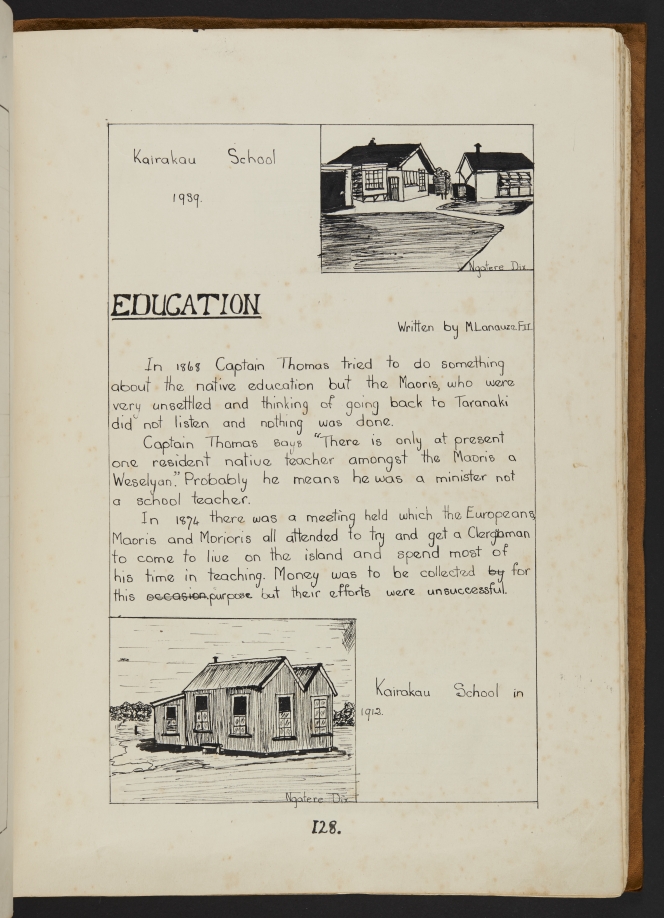 Kairakau School
1939.
Ngatere Dix
EDUCATION
Written by M Lanauze. F.II.
In 1868 Captain Thomas tried to do something
about the native education but the Maoris, who were
very unsettled and thinking of going back to Taranaki
did not listen and nothing was done.
Captain Thomas says "There is only at present
one resident native teacher amongst the Maoris a
Weselyan." Probably he means he was a minister not
a school teacher.
In 1874 there was a meeting held which the Europeans,
Maoris and Morioris all attended to try and get a Clergyman
to come to live on the island and spend most of
his time in teaching. Money was to be collected by for
this occasion, purpose but their efforts were unsuccessful.
Kairakau School in
1912.
Ngatere Dix
128.